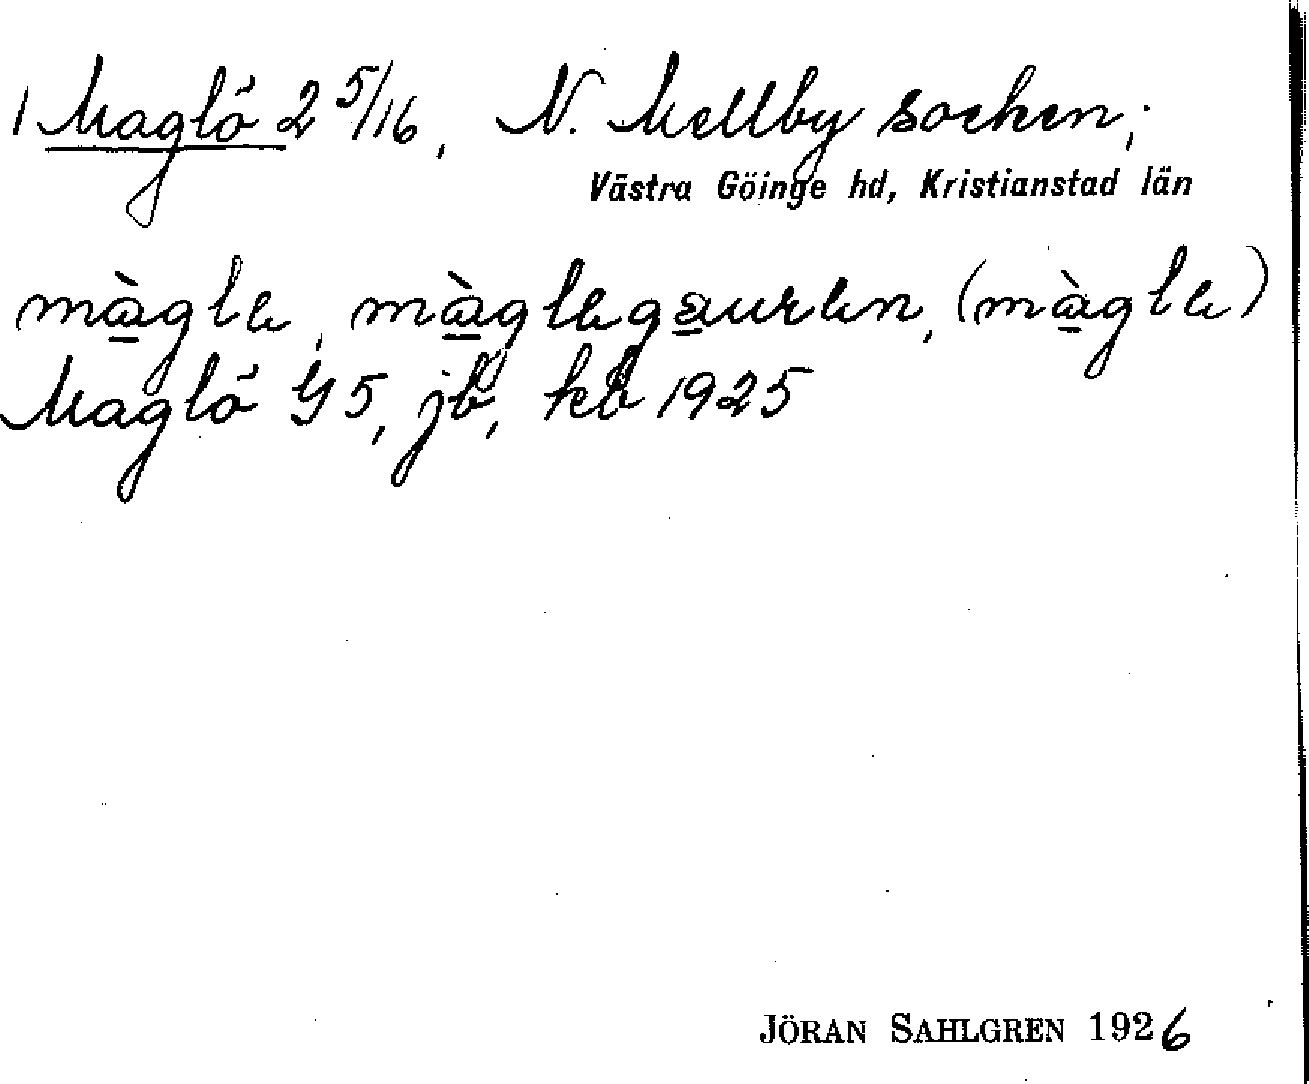 1 Maglö 2 5/16, N. Mellby socken,
Västra Göinge hd, Kristianstad län
màgle, màglegaurən, (màgle)
Maglö G5, jb, kb 1925
JÖRAN SAHLGREN 1926